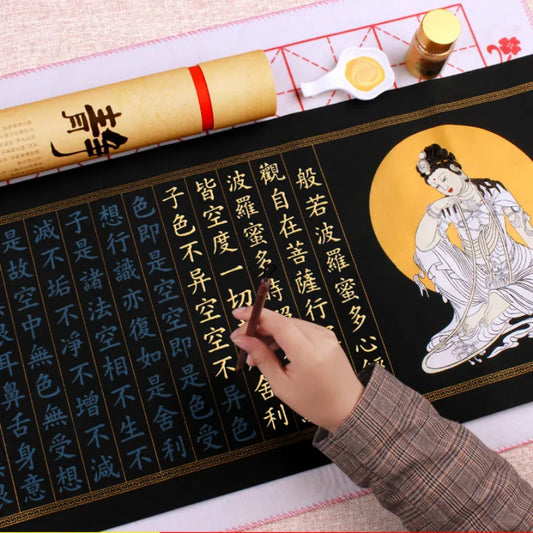 般若波羅蜜多心
觀自在菩薩行
波羅蜜多時
皆空度一切
舍利
子色不异空空不异色
色即是空空即是色受
想行識亦復如是舍利
子是諸法空相不生不
滅不垢不淨不增不減
是故空中無色無受想
耳鼻舌身意